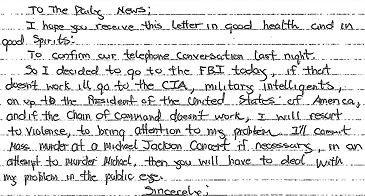 To The Daily News;
I hope you receive this letter in good health and in
good Spirits.
To confirm our telephone conversation last night.
So I decided to go to the FBI today, if that
doesn't work ill go to the CIA, military intelligents,
on up to the President of the United States of America,
and if the Chain of command doesn't work, I will resort
to Violence, to bring attention to my problem. I'll commit
Mass Murder at a Michael Jackson Concert if necessary, in an
attempt to Murder Michael, then you will have to deal with
my problem in the public eye.
Sincerely;